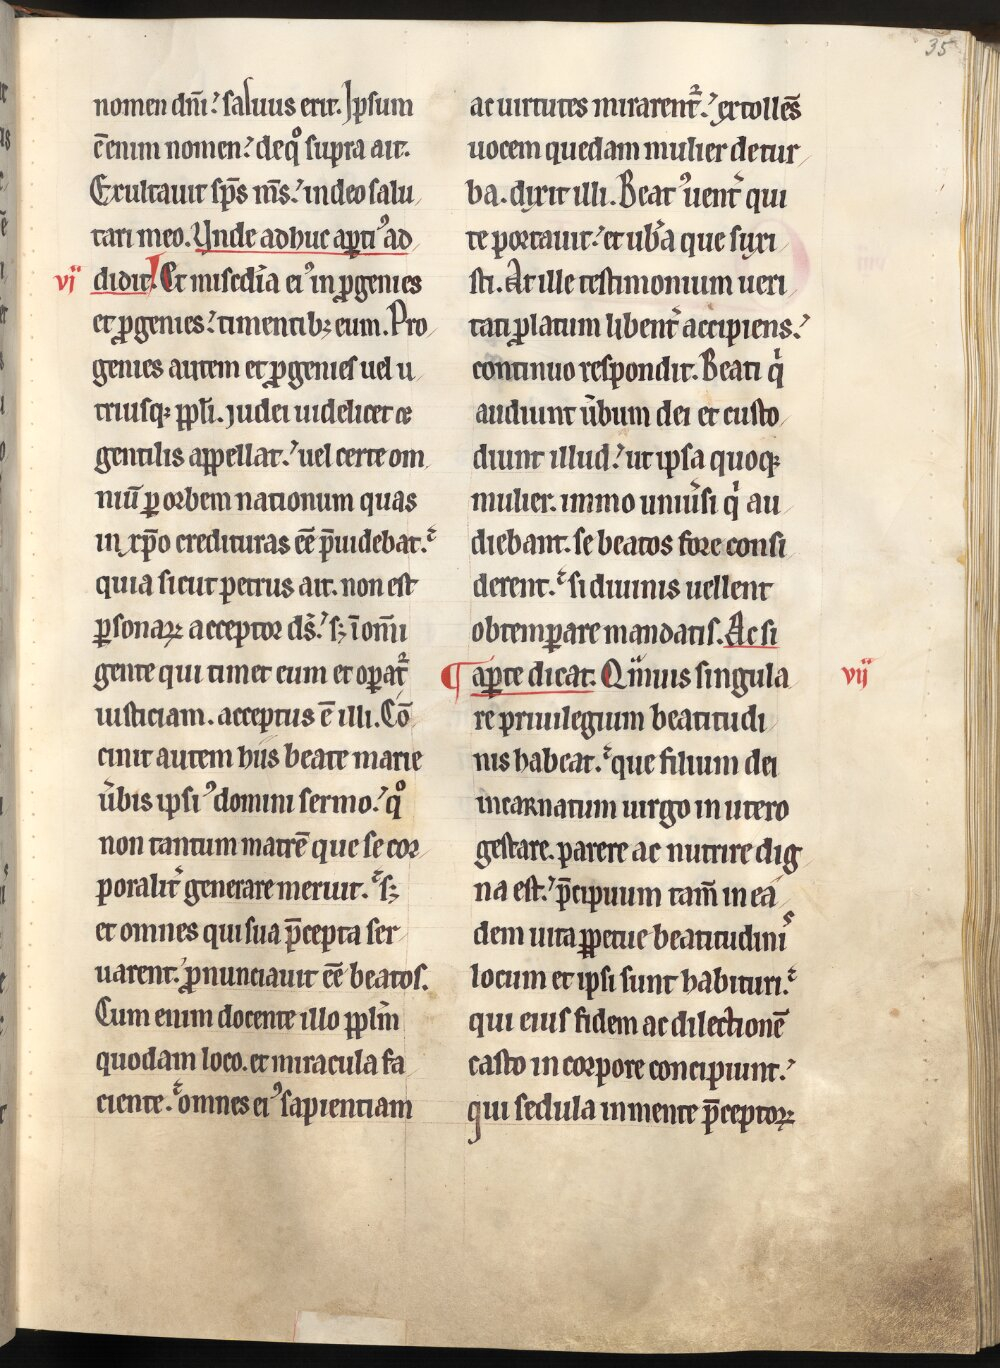 35
nomen dñi. saluus erit. Ipsum
ē enim nomen. de qͦ supra ait.
Exultauit sp̄s m̄s. in deo salu
tari meo. Unde adhuc aꝑtiꝰ ad
vi didit. Et misedīa eiꝰ in ꝓgenies
et ꝓgenies. timentibꝫ eum. Pro
genies autem et ꝓgenies uel u
triusqꝫ ppłi. iudei uidelicet ⁊
gentilis appellat. uel certe om
niū ꝑ orbem nationum quas
in xp̄o credituras eē p̄uidebat.
quia sicut petrus ait. non est
ꝑsonaꝝ acceptor ds̄. sꝫ ī om̄i
gente qui timet eum et oꝑat᷑
iusticiam. acceptus ē illi. Cō
cinit autem hiis beate marie
ūbis ipsiꝰ domini sermo. qͦ
non tantum matrē que se cor
poralit̄ generare meruit. sꝫ
et omnes qui sua p̄cepta ser
uarent. ꝓnunciauit eē beatos.
Cum enim docente illo ppl̄m
quodam loco. et miracula fa
ciente. omnes eiꝰ sapientiam
ac uirtutes mirarent᷑. extollēs
uocem quedam mulier de tur
ba. dixit illi. Beatꝰ uent̄ qui
te portauit. et ub̄a que suxi
sti. At ille testimonium ueri
tati ꝓlatum libent̄ accipiens.
continuo respondit. Beati qͥ
audiunt ūbum dei et custo
diunt illud. ut ipsa quoqꝫ
mulier. immo uniūsi qͥ au
diebant. se beatos fore consi
derent. si diuinis uellent
obtemꝑare mandatis. Ac si
¶ aꝑte dicat. Qͣmuis singula vii
re priuilegium beatitudi
nis habeat. que filium dei
incarnatum uirgo in utero
gestare. parere ac nutrire dig
na est. p̄cipuum tam̄ in ea
dem uita ꝑpetue beatitudinis
locum et ipsi sunt habituri.
qui eius fidem ac dilectionē
casto in corpore concipiunt.
qui sedula in mente p̄ceptoꝝ